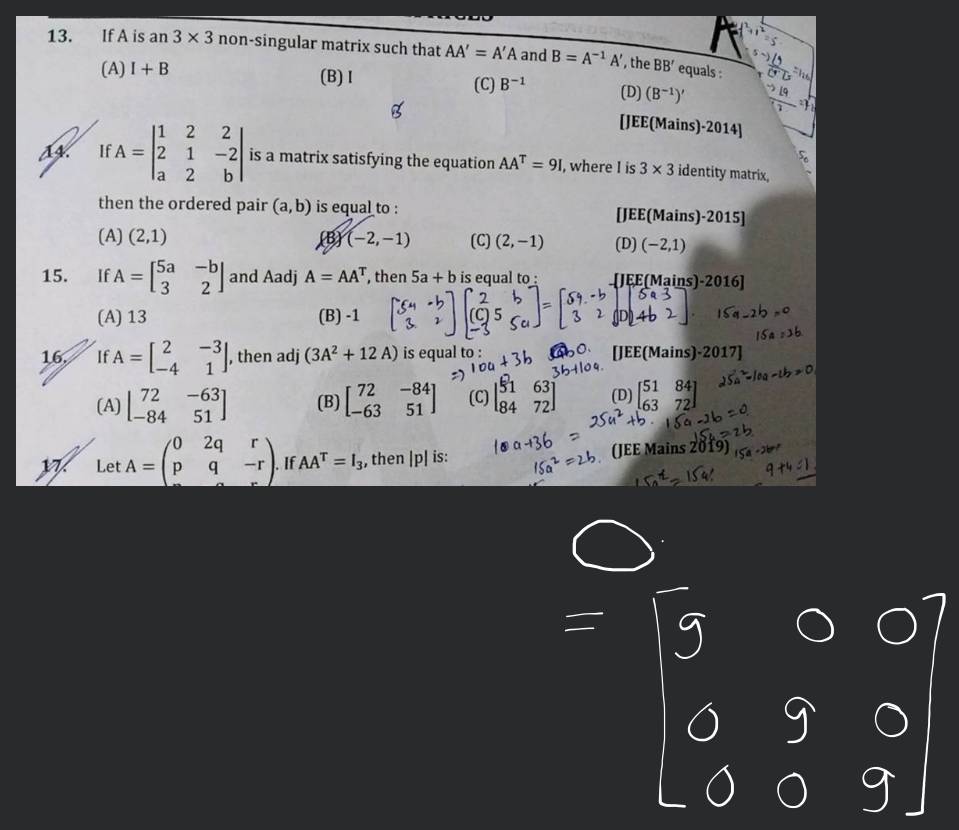 13. If A is an 3 × 3 non-singular matrix such that AA' = A'A and B = A⁻¹ A', the BB' equals :
(A) I + B (B) I (C) B⁻¹ (D) (B⁻¹)'
[JEE(Mains)-2014]
14. If A = |1 2 2
2 1 −2
a 2 b| is a matrix satisfying the equation AAᵀ = 9I, where I is 3 × 3 identity matrix,
then the ordered pair (a, b) is equal to :
[JEE(Mains)-2015]
(A) (2,1) (B) (−2, −1) (C) (2, −1) (D) (−2,1)
15. If A = [5a −b
3 2] and Aadj A = AAᵀ, then 5a + b is equal to :
[JEE(Mains)-2016]
(A) 13 (B) -1 (C) 5 (D) 4
[5a -b
3 2] [2 b
-3 5a] = [5a -b
3 2] [5a 3
-b 2]
15a-2b=0
15a=2b
16. If A = [2 −3
−4 1], then adj (3A² + 12 A) is equal to :
[JEE(Mains)-2017]
⇒ 10a+3b
3b+10a
(A) [72 −63
−84 51] (B) [72 −84
−63 51] (C) [51 63
84 72] (D) [51 84
63 72]
25a²+b
15a-2b=0
10a+3b =
17. Let A = (0 2q r
p q −r
r). If AAᵀ = I₃, then |p| is:
(JEE Mains 2019)
15a²=2b.
9+4=1
0
= [9 0 0
0 9 0
0 0 9]